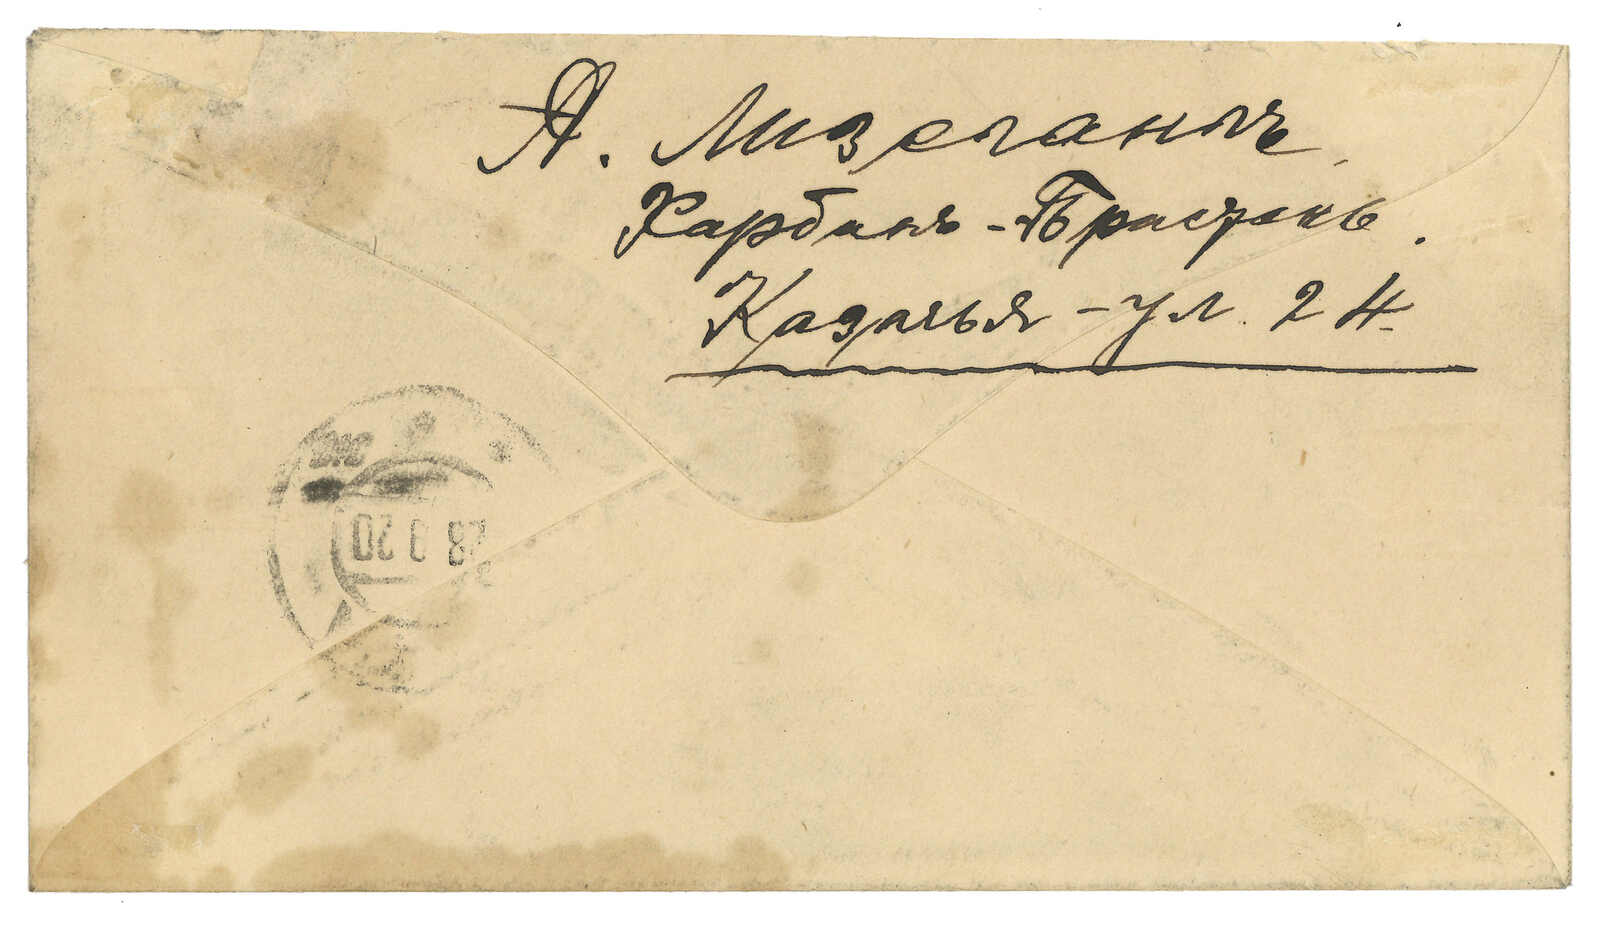 А. Лизогановъ
Харбинъ - Пристань.
Казачья - ул. 24
28 9 20